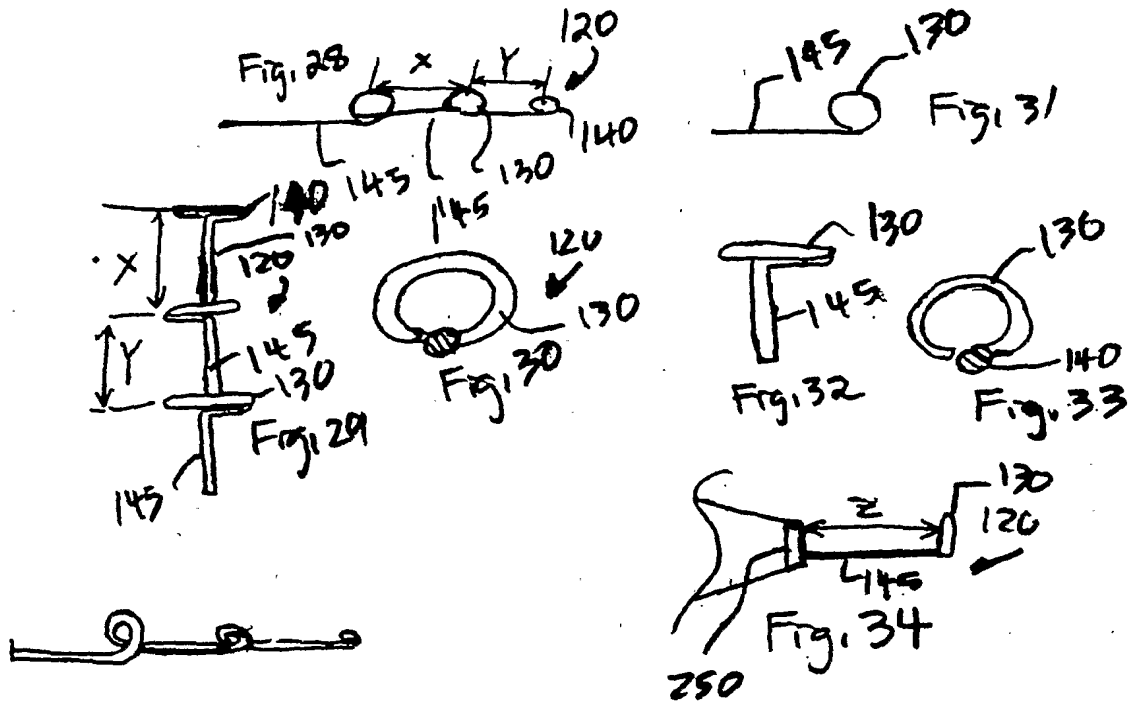 Fig. 28
X
Y
120
145
145
130
140
145
130
Fig. 31
140
130
X
120
Y
145
130
Fig. 29
145
120
130
Fig. 30
130
145
Fig. 32
130
140
Fig. 33
130
Z
120
145
Fig. 34
250